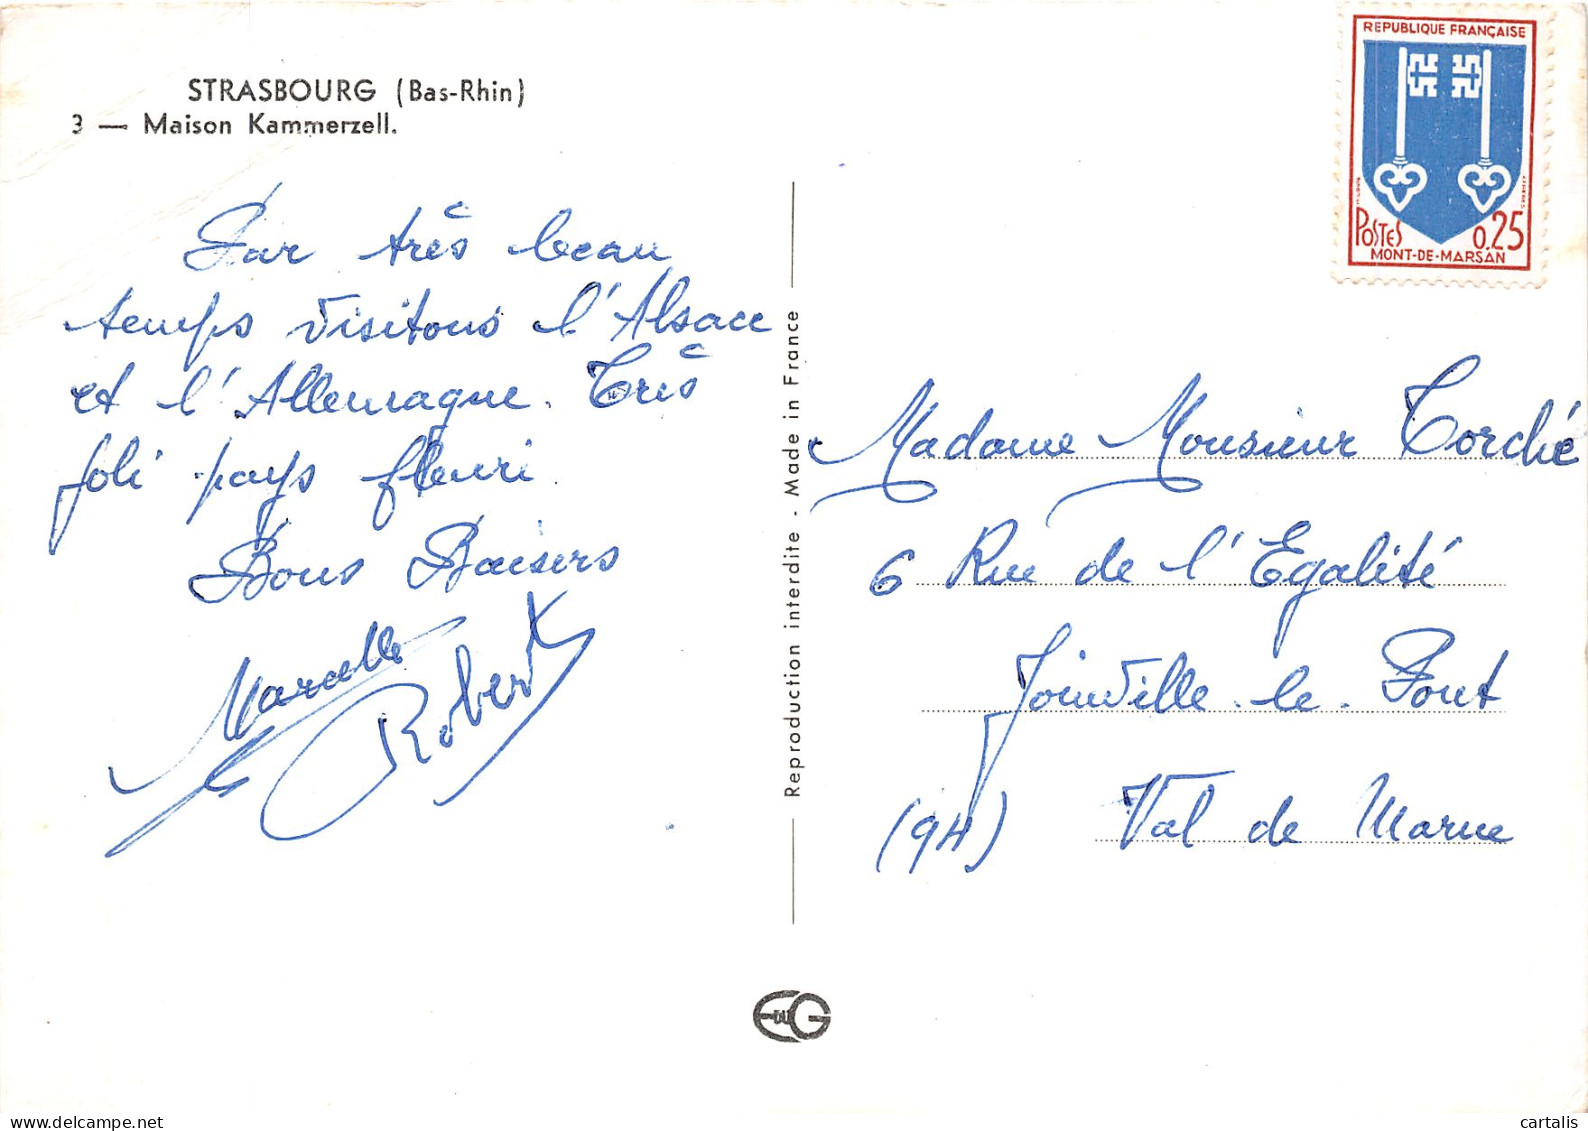 STRASBOURG (Bas-Rhin)
3 — Maison Kammerzell.
Par très beau
temps visitons l'Alsace
et l'Allemagne. Très
joli pays fleuri.
Bons Baisers
Marcelle
Robert
Reproduction interdite - Made in France
REPUBLIQUE FRANÇAISE
POSTES 0.25
MONT-DE-MARSAN
Madame Monsieur Torché
6 Rue de l'Egalité
Joinville-le-Pont
(94) Val de Marne
E DU G
delcampe.net
cartalis